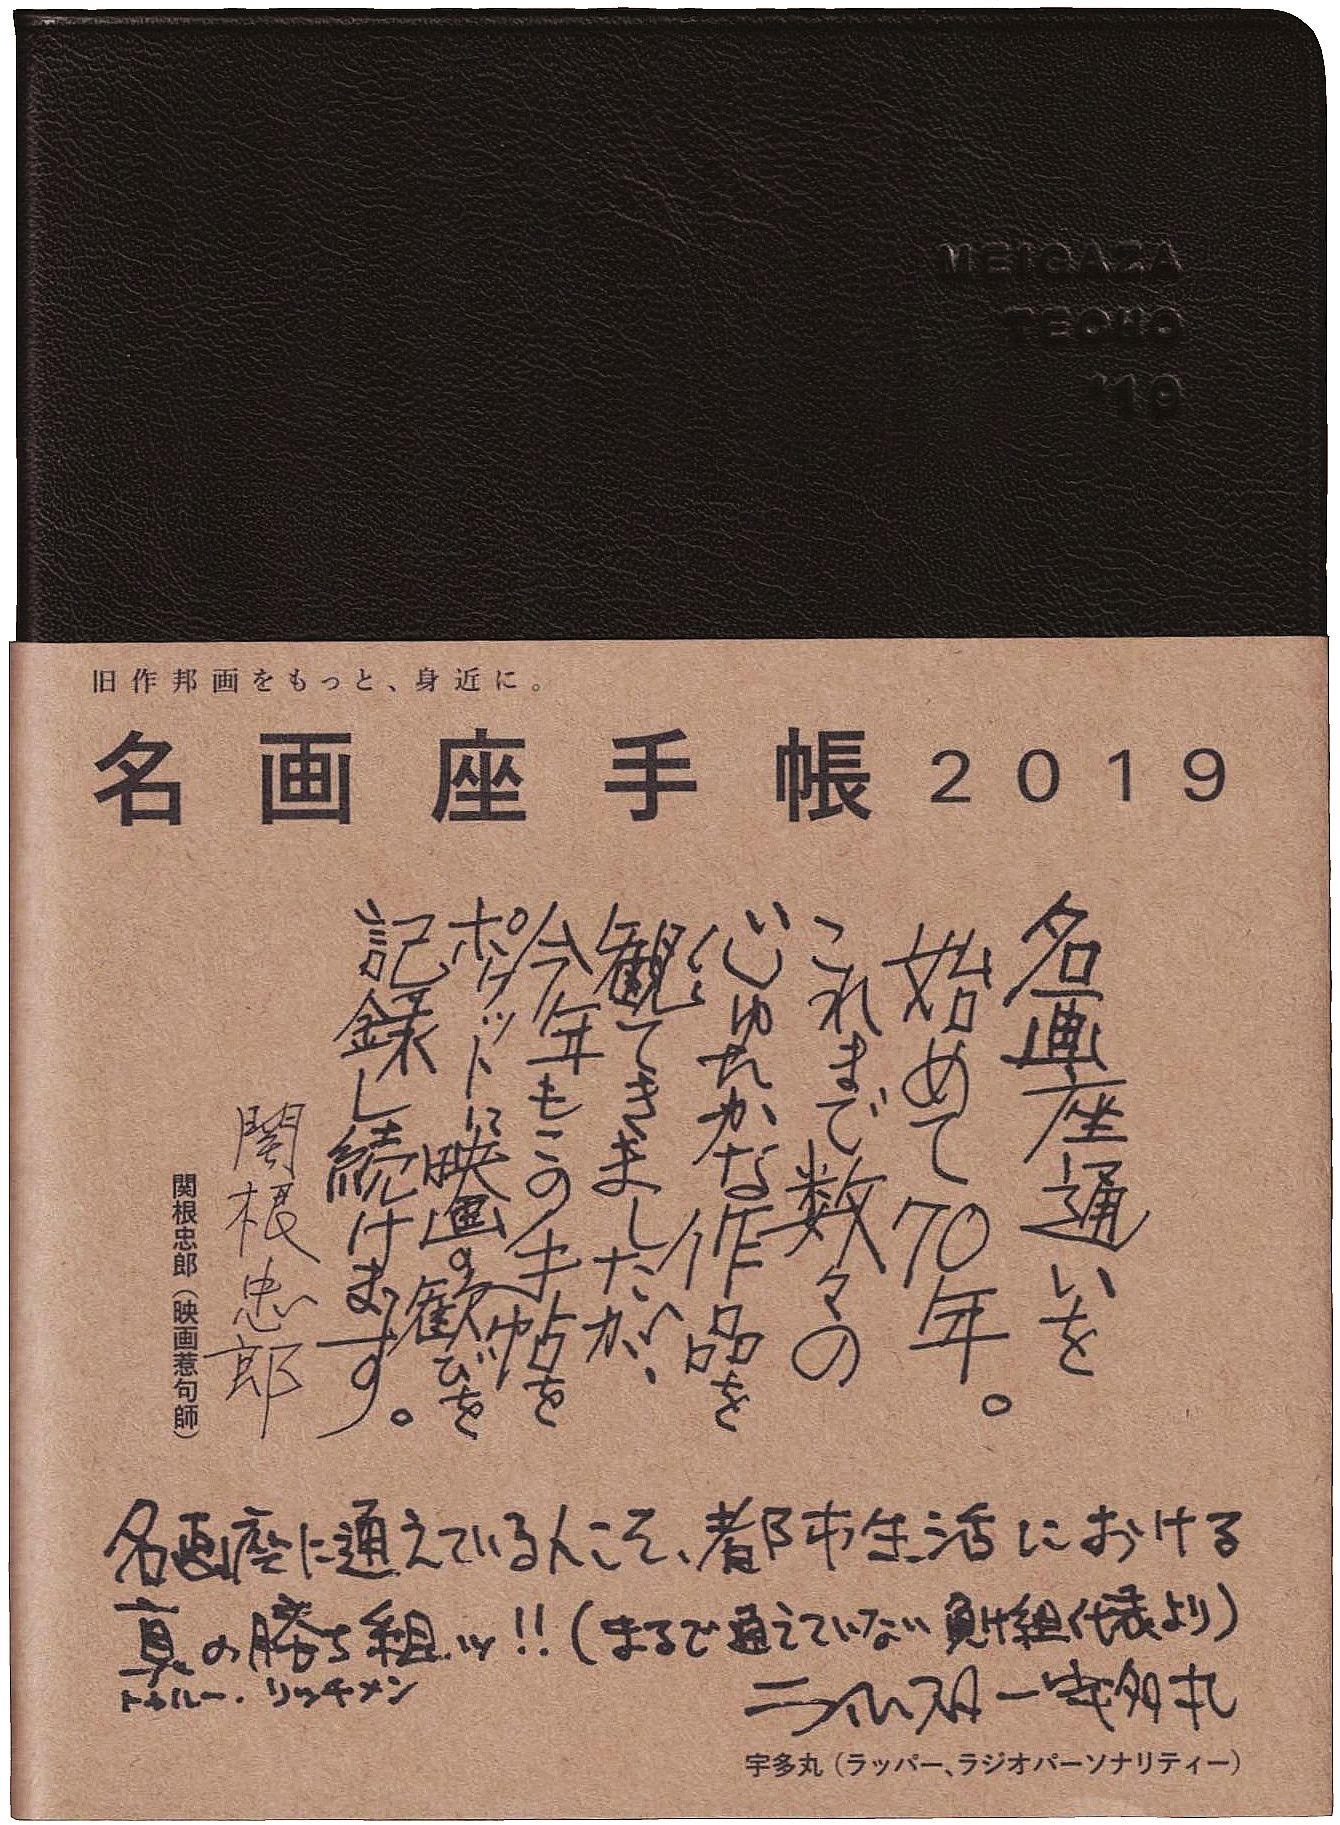 MEIGAZA
TECHO
'19
旧作邦画をもっと、身近に。
名画座手帳2019
名画座通いを
始めて70年。
これまで数々の
心しゆたかな作品を
観てきましたが、
今年もこの手帖を
ポケットに映画の歓びを
記録し続けます。
関根忠郎
関根忠郎(映画惹句師)
名画座に通えている人こそ、都市生活における
真の勝ち組ッ!!(まるで通えていない負け組代表より)
トゥルー・リッチメン
ライムスター宇多丸
宇多丸(ラッパー、ラジオパーソナリティー)